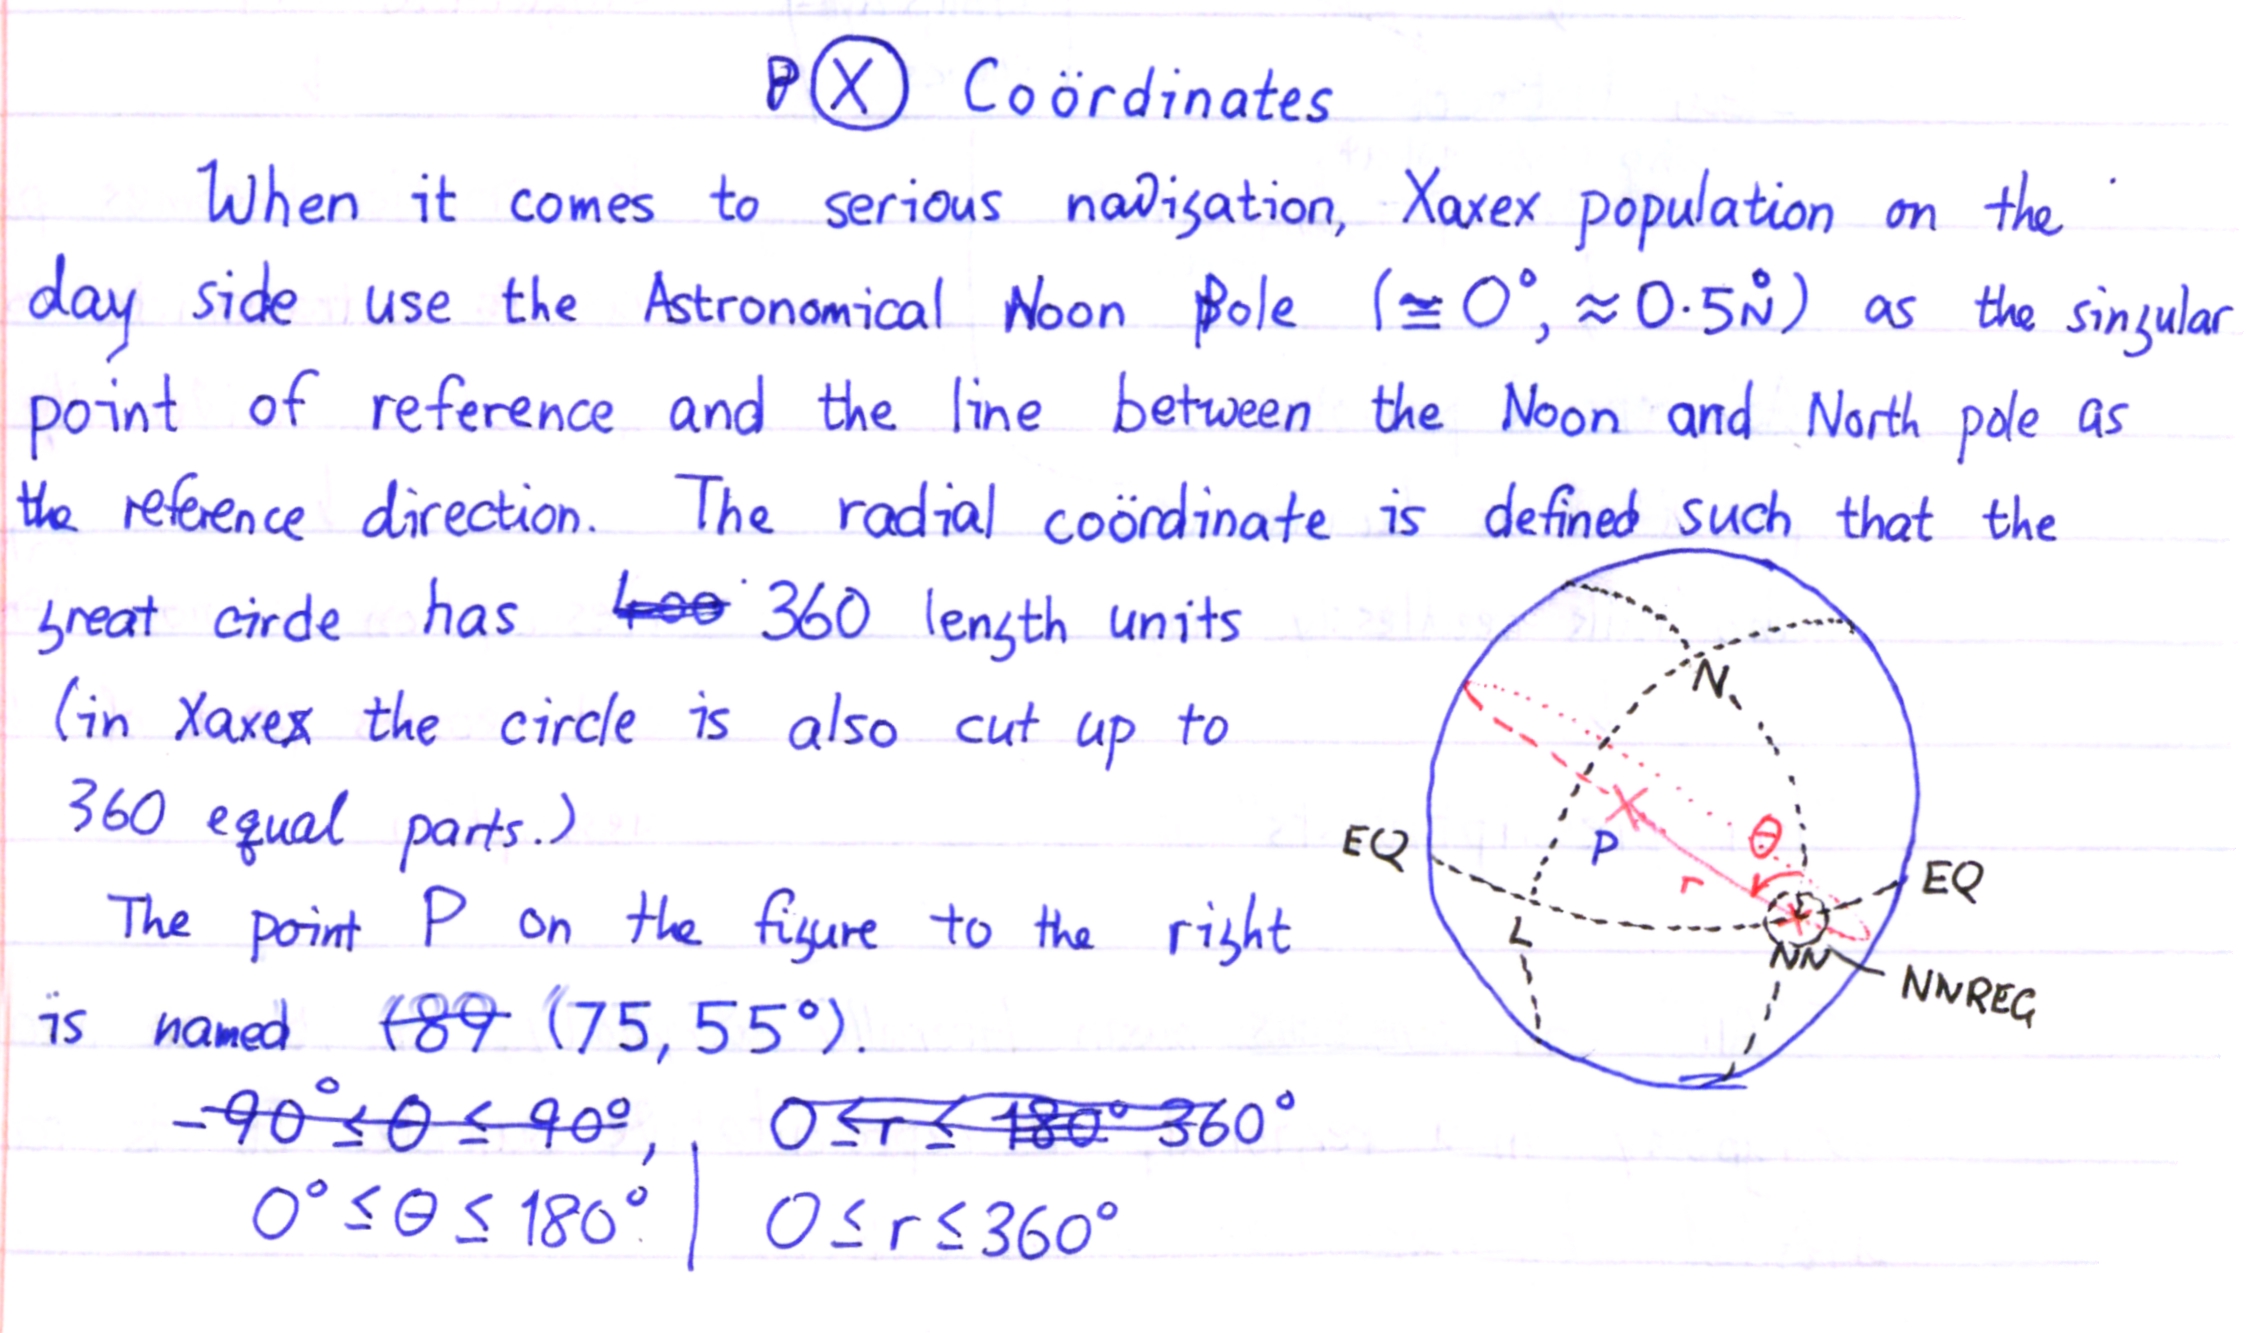 Ⓧ Coördinates
When it comes to serious navigation, Xaxex population on the
day side use the Astronomical Noon Pole (≅0°, ≈0.5°N) as the singular
point of reference and the line between the Noon and North pole as
the reference direction. The radial coördinate is defined such that the
great circle has 400 360 length units
(in Xaxex the circle is also cut up to
360 equal parts.)
The point P on the figure to the right
is named (89 (75, 55°).
-90° ≤ θ ≤ 90°, 0 ≤ r ≤ 180° 360°
0° ≤ θ ≤ 180° | 0 ≤ r ≤ 360°
N
P
θ
r
EQ
EQ
L
NN
NNREG